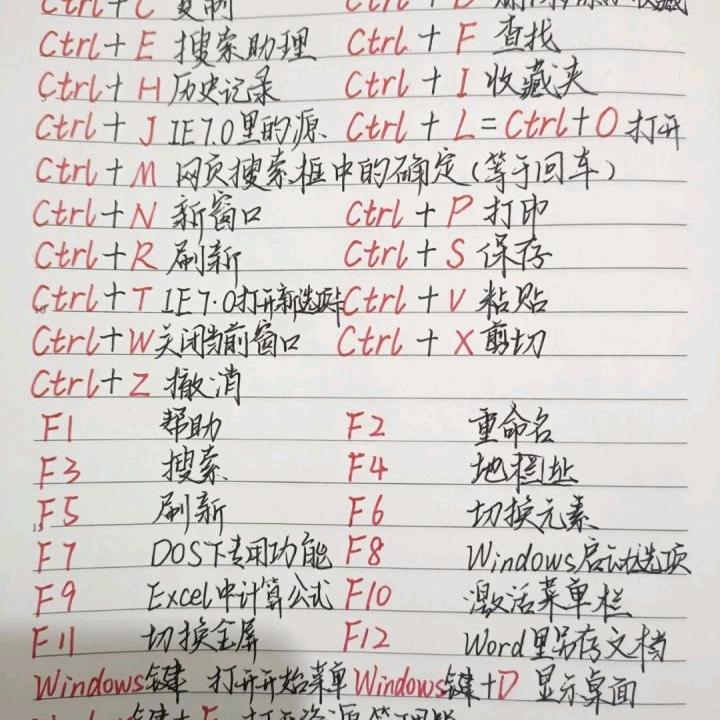 Ctrl+C 复制 Ctrl+D
Ctrl+E 搜索助理 Ctrl+F 查找
Ctrl+H 历史记录 Ctrl+I 收藏夹
Ctrl+J IE7.0里的源 Ctrl+L=Ctrl+O 打开
Ctrl+M 网页搜索框中的确定(等于回车)
Ctrl+N 新窗口 Ctrl+P 打印
Ctrl+R 刷新 Ctrl+S 保存
Ctrl+T IE7.0打开新选项卡 Ctrl+V 粘贴
Ctrl+W 关闭当前窗口 Ctrl+X 剪切
Ctrl+Z 撤消
F1 帮助 F2 重命名
F3 搜索 F4 地栏址
F5 刷新 F6 切换元素
F7 DOS下专用功能 F8 Windows启动选项
F9 Excel中计算公式 F10 激活菜单栏
F11 切换全屏 F12 Word里另存文档
Windows键 打开开始菜单 Windows键+D 显示桌面
Windows键+E 打开资源管理器